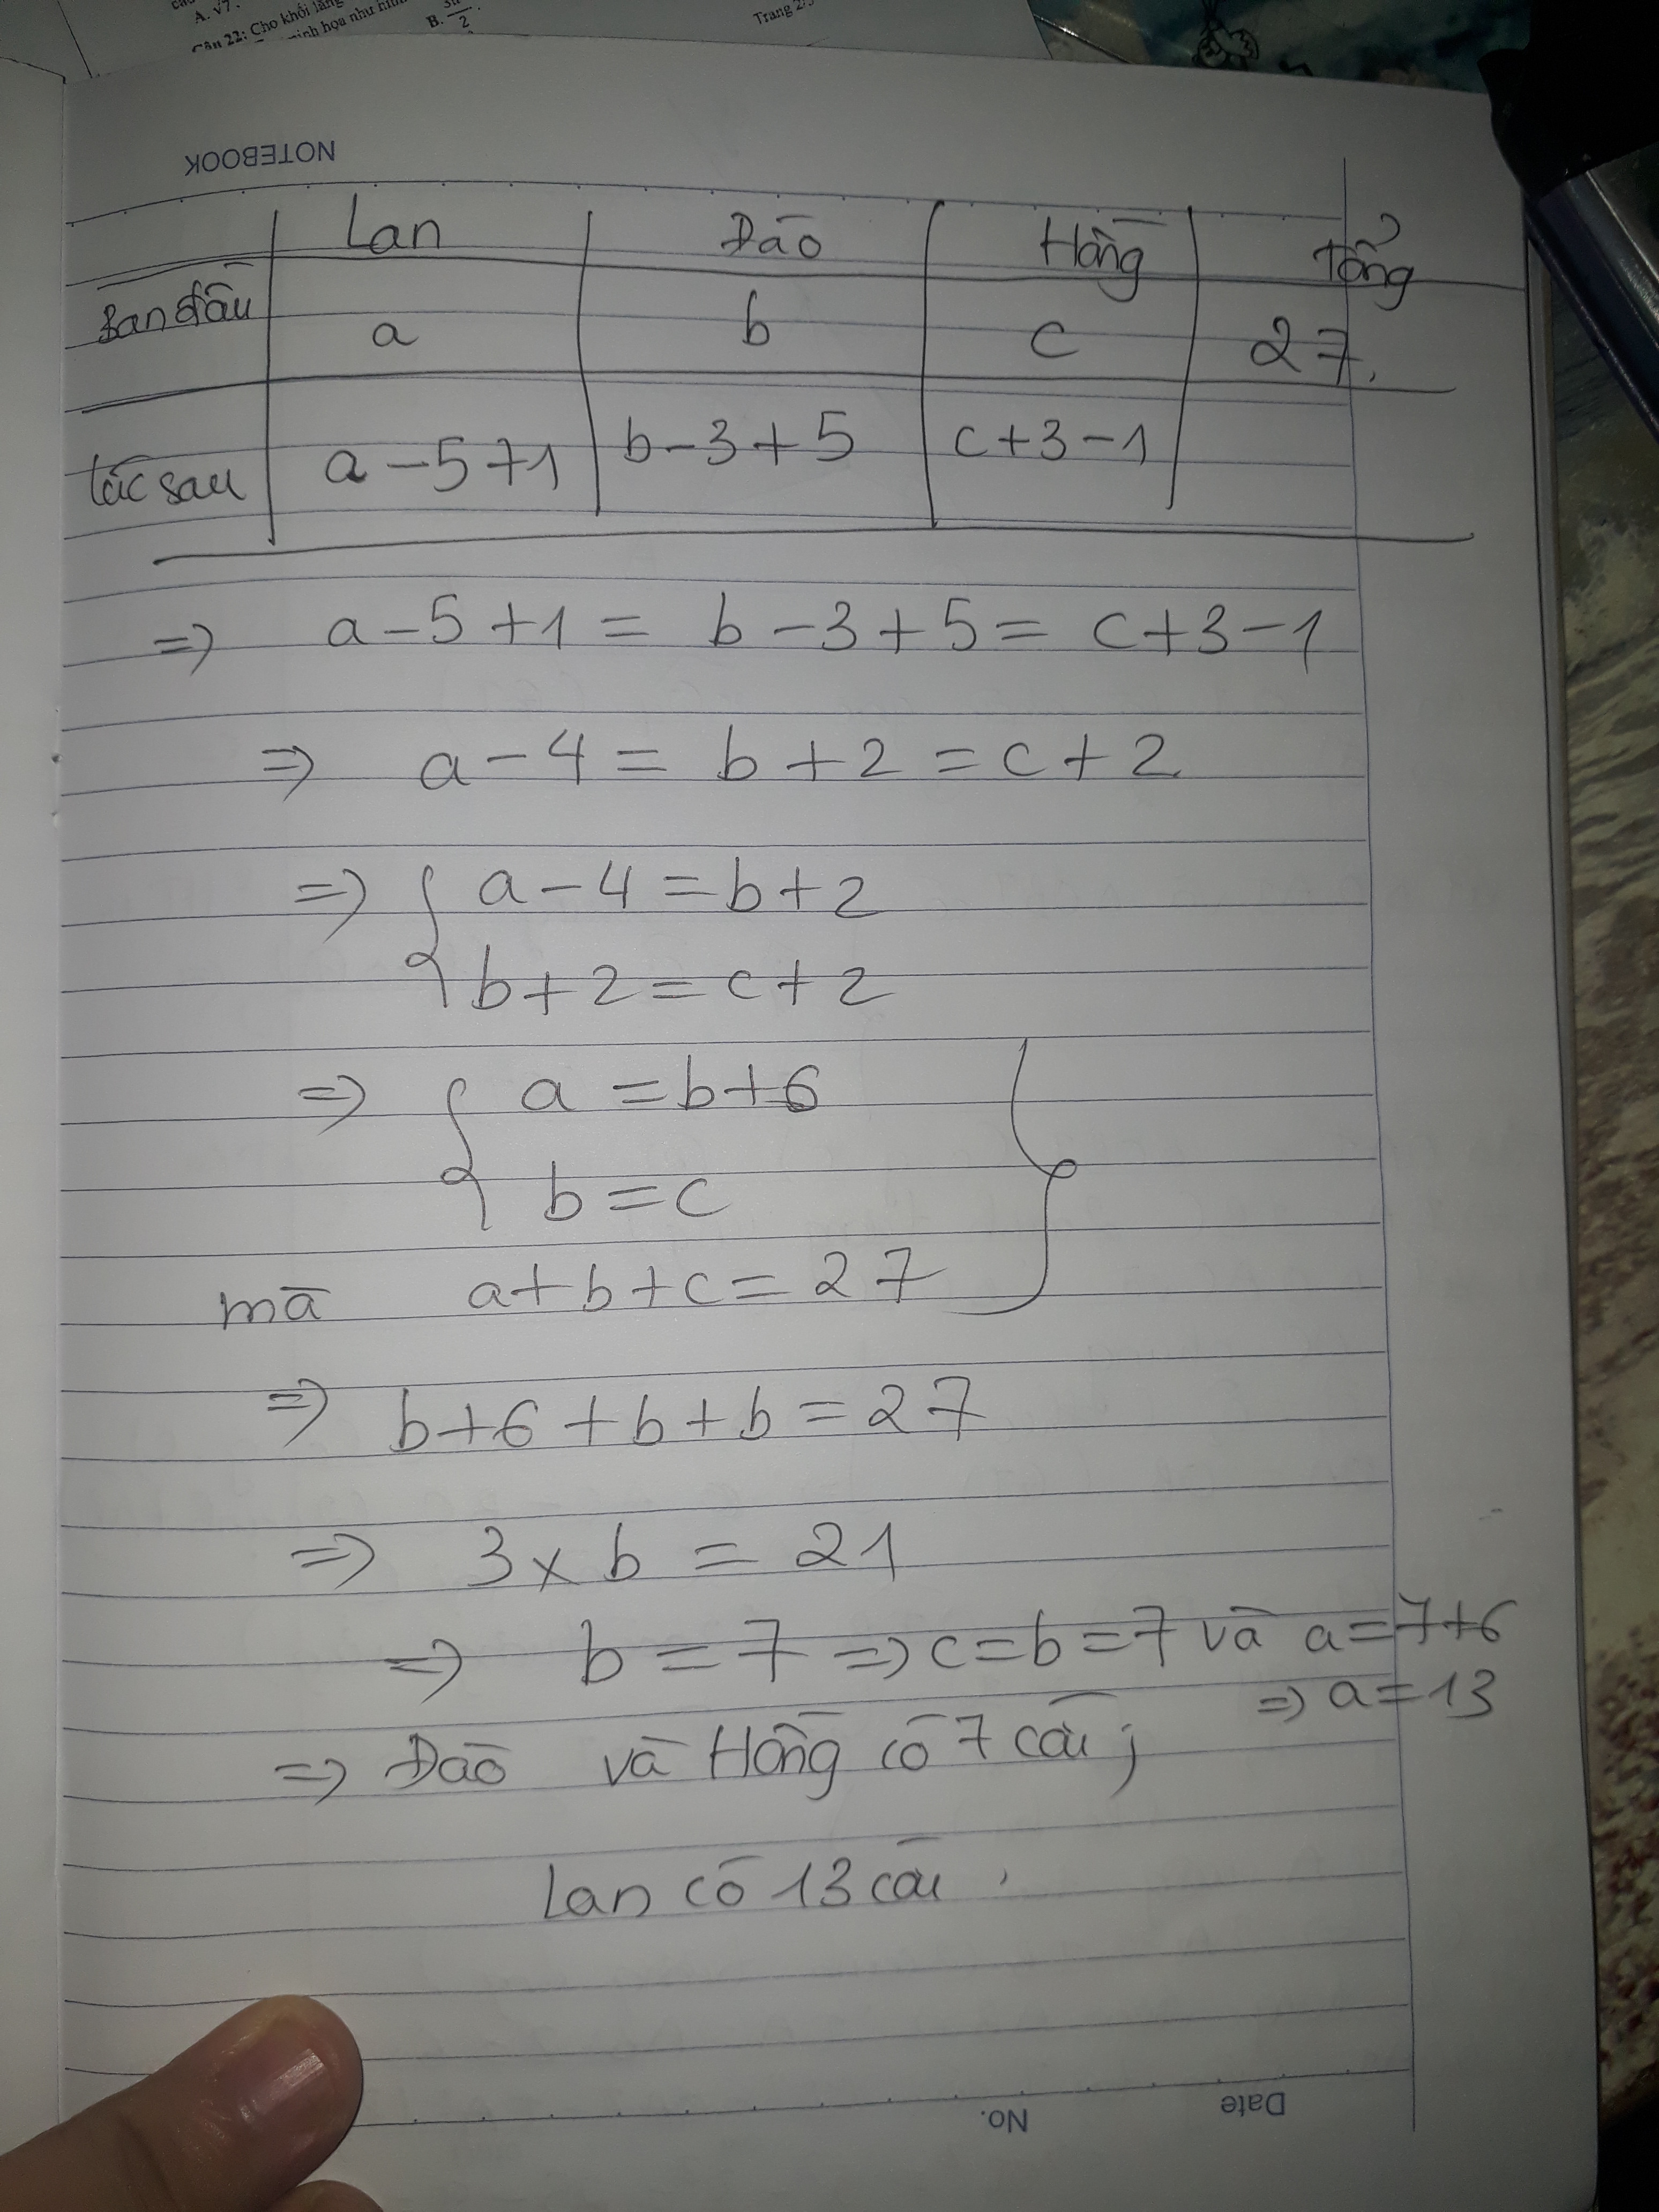 A. √7.
Câu 22: Cho khối lăng
minh họa như hình
B.
Trang 2/5
NOTEBOOK
Lan Đào Hồng Tổng
Ban đầu a b c 27.
lúc sau a-5+1 b-3+5 c+3-1
=> a-5+1 = b-3+5 = c+3-1
=> a-4 = b+2 = c+2
=> { a-4 = b+2
b+2 = c+2
=> { a = b+6
b = c
mà a+b+c = 27
=> b+6+b+b = 27
=> 3 x b = 21
=> b = 7 => c = b = 7 và a = 7+6
=> a = 13
=> Đào và Hồng có 7 cái;
Lan có 13 cái.
No.
Date